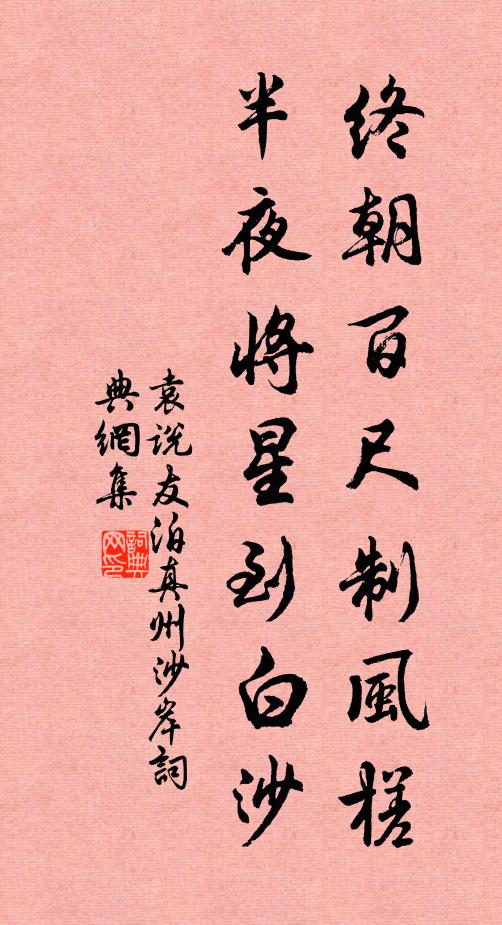 終朝百尺制風槎
半夜將星到白沙
袁說友泊真州沙岸詞
典網集
詞典
网印